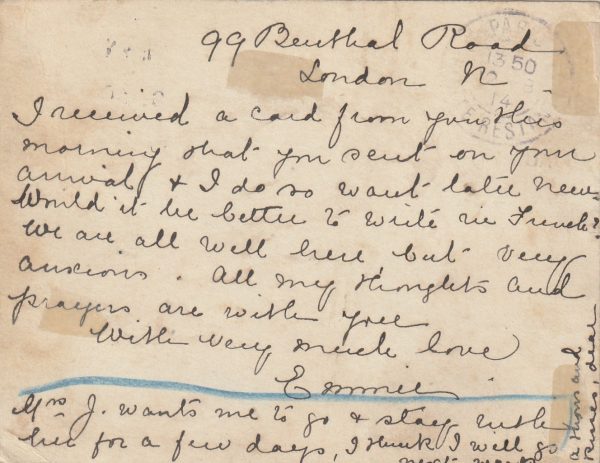 99 Benthal Road
London N
I received a card from you this
morning that you sent on your
arrival & I do so want later news.
Would it be better to write in French?
We are all well here but very
anxious. All my thoughts and
prayers are with you
With very much love
Emmie
Mrs J. wants me to go & stay with
her for a few days, I think I will go
next week
a thousand
times, dear
PARIS
13 50
14
RESTANTE